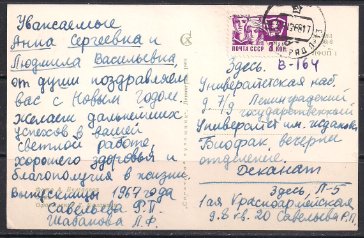 Уважаемые
Анна Сергеевна и
Людмила Васильевна,
от души поздравляем
вас с Новым годом.
Желаем дальнейших
успехов в вашей
светлой работе,
хорошего здоровья и
благополучия в жизни.
Выпускницы 1967 года
Савельева Р.П.
Шабанова Л.Ф.
ПОЧТА СССР
Здесь. В-164
Университетская наб.
д. 7/9 Ленинградский
государственный
Университет им. Жданова
Биофак вечернее
отделение.
Деканат
Здесь, Л-5
1ая Красноармейская
д. 6 кв. 20 Савельева Р.П.